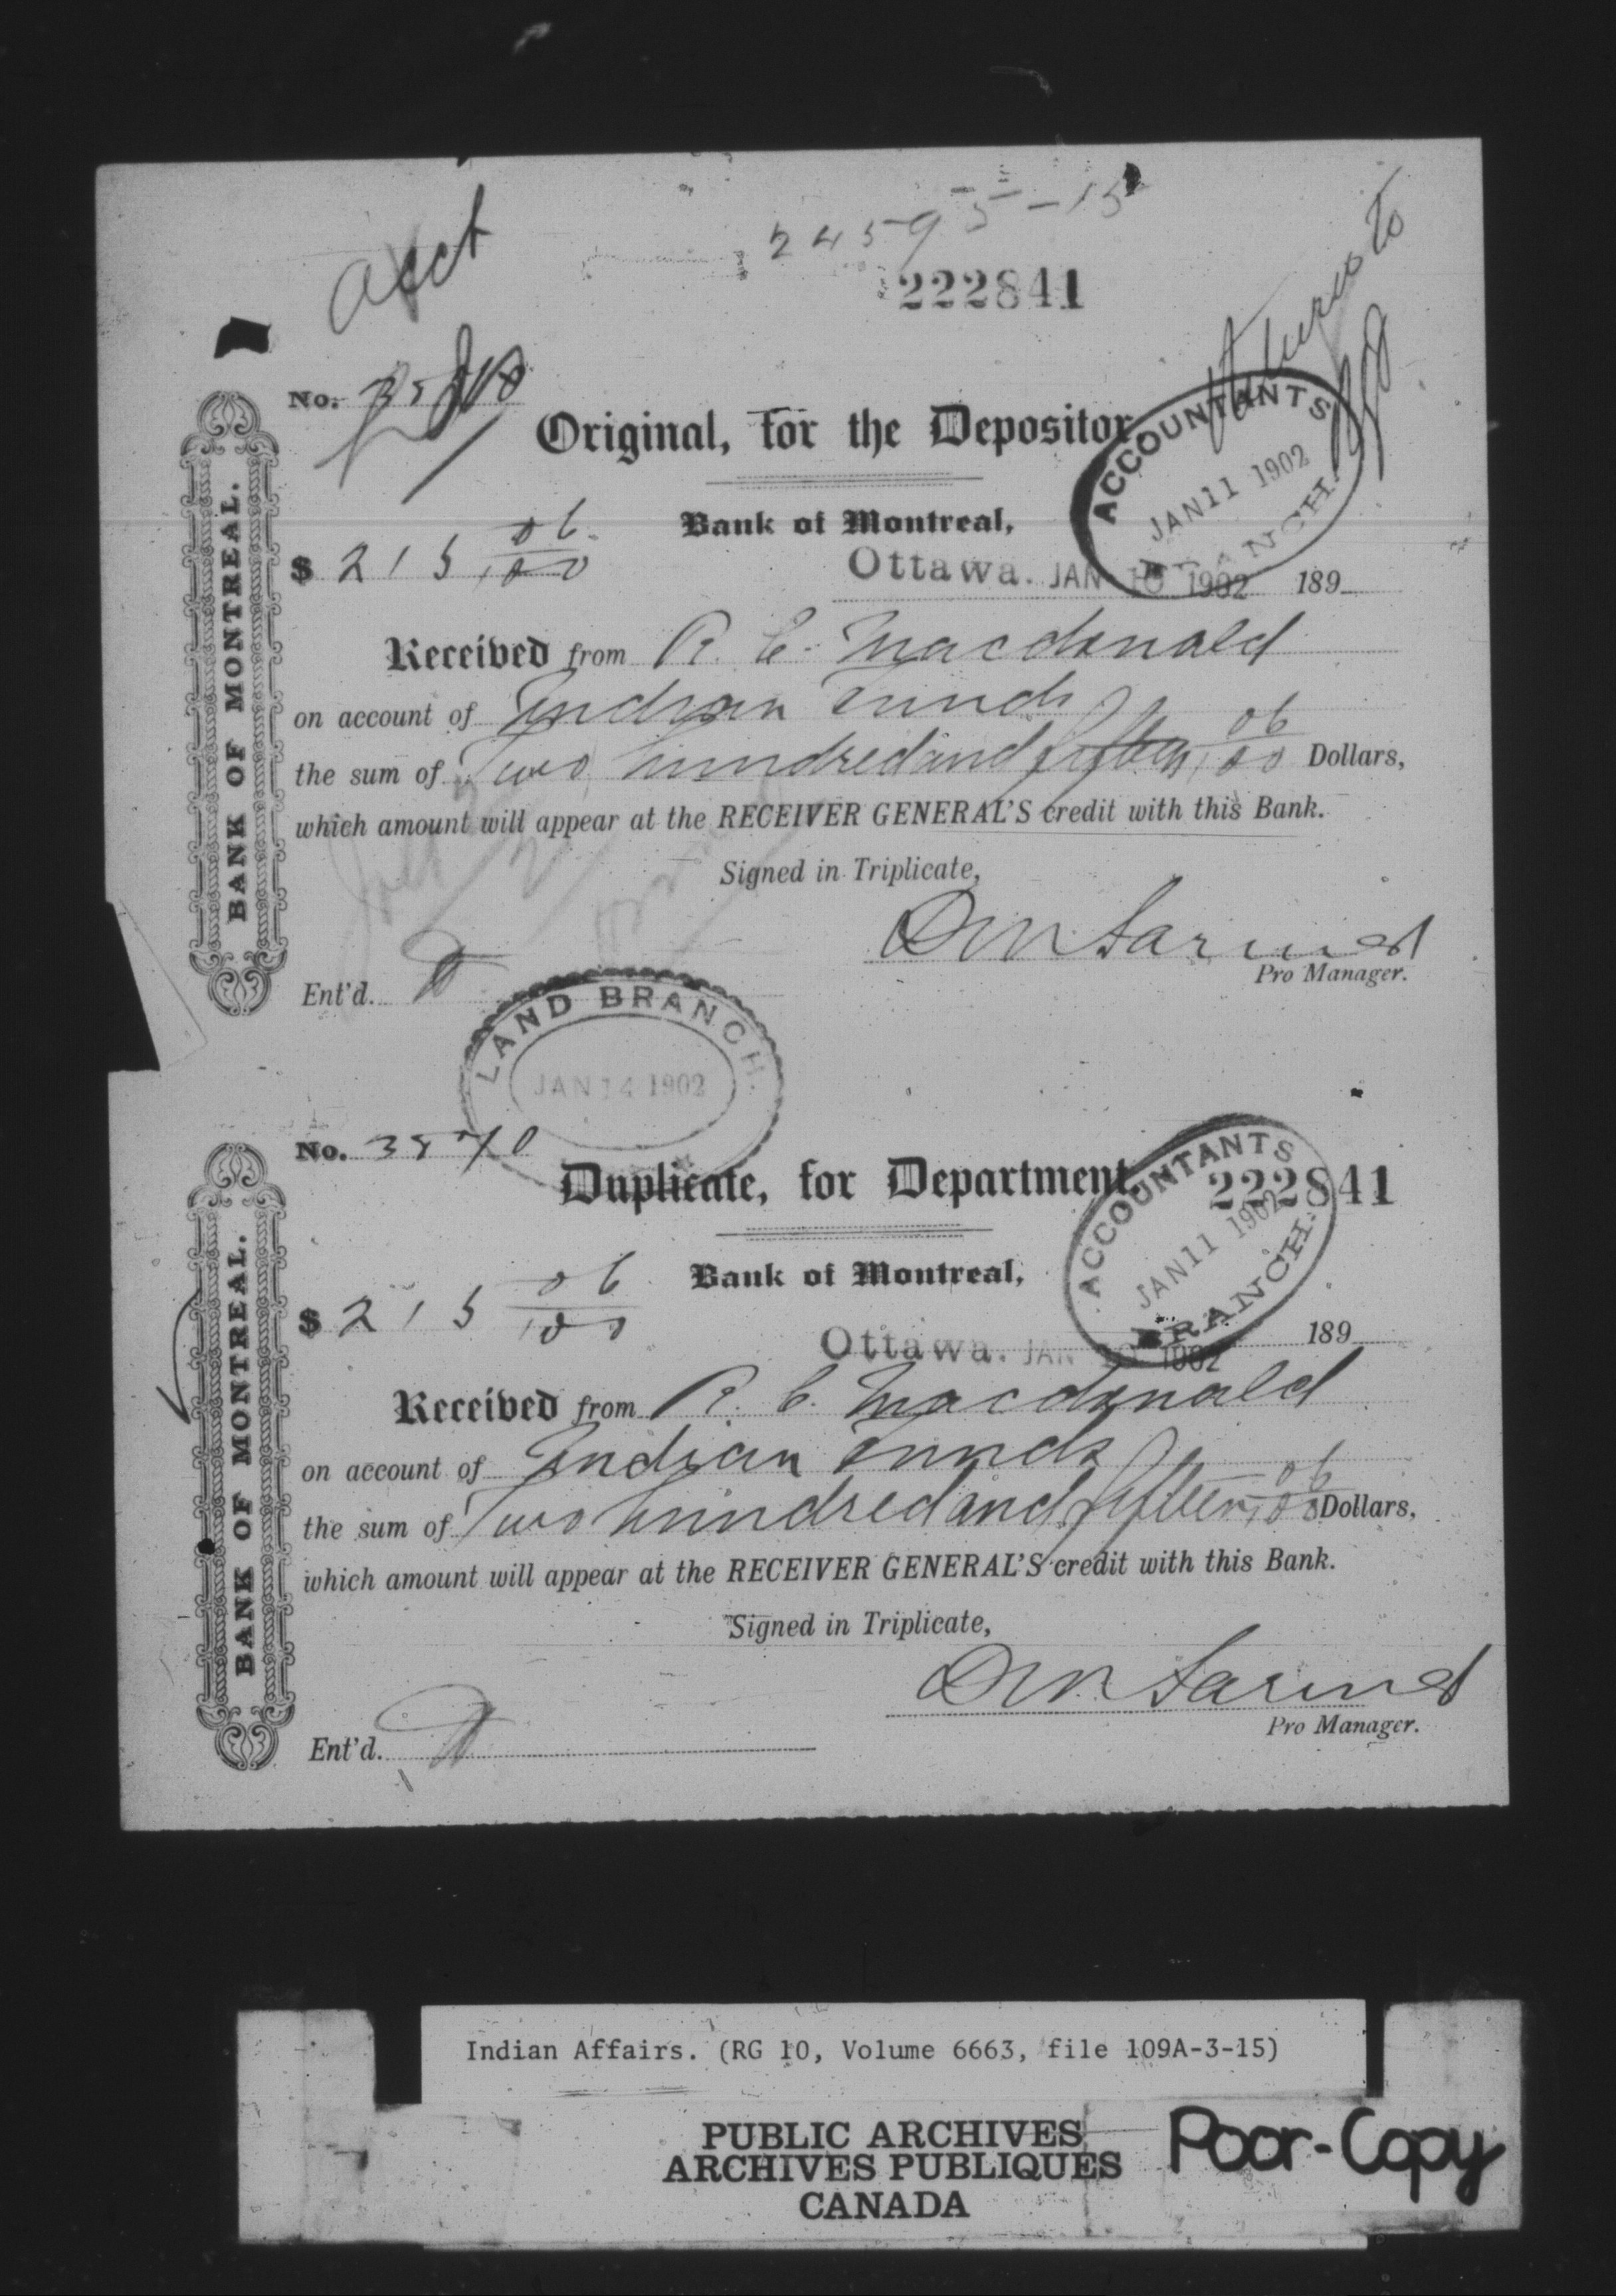 acct
24595-15
222841
Return to
No.
Original, for the Depositor.
ACCOUNTANTS
JAN 11 1902
BRANCH.
BANK OF MONTREAL.
$ 215 06/100
Bank of Montreal,
Ottawa. JAN 10 1902 189
Received from R. C. Macdonald
on account of Indian Funds
the sum of Two hundred and fifteen 06/100 Dollars,
which amount will appear at the RECEIVER GENERAL'S credit with this Bank.
Signed in Triplicate,
Pro Manager.
Ent'd.
LAND BRANCH.
JAN 14 1902
No.
Duplicate, for Department.
222841
ACCOUNTANTS
JAN 11 1902
BRANCH.
BANK OF MONTREAL.
$ 215 06/100
Bank of Montreal,
Ottawa. JAN 10 1902 189
Received from R. C. Macdonald
on account of Indian Funds
the sum of Two hundred and fifteen 06/100 Dollars,
which amount will appear at the RECEIVER GENERAL'S credit with this Bank.
Signed in Triplicate,
Pro Manager.
Ent'd.
Indian Affairs. (RG 10, Volume 6663, file 109A-3-15)
PUBLIC ARCHIVES
ARCHIVES PUBLIQUES
CANADA
Poor-Copy